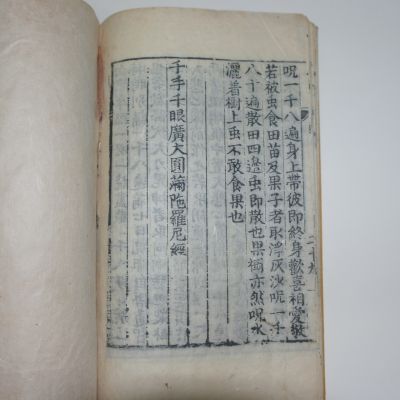 呪一千八遍身上帶彼即終身歡喜相愛敬
若被虫食田苗及果子者取浮灰沙呪一千
八十遍散田四邉虫即散也果樹亦然呪水
灑着樹上虫不敢食果也
千手千眼廣大圓滿陁羅尼經